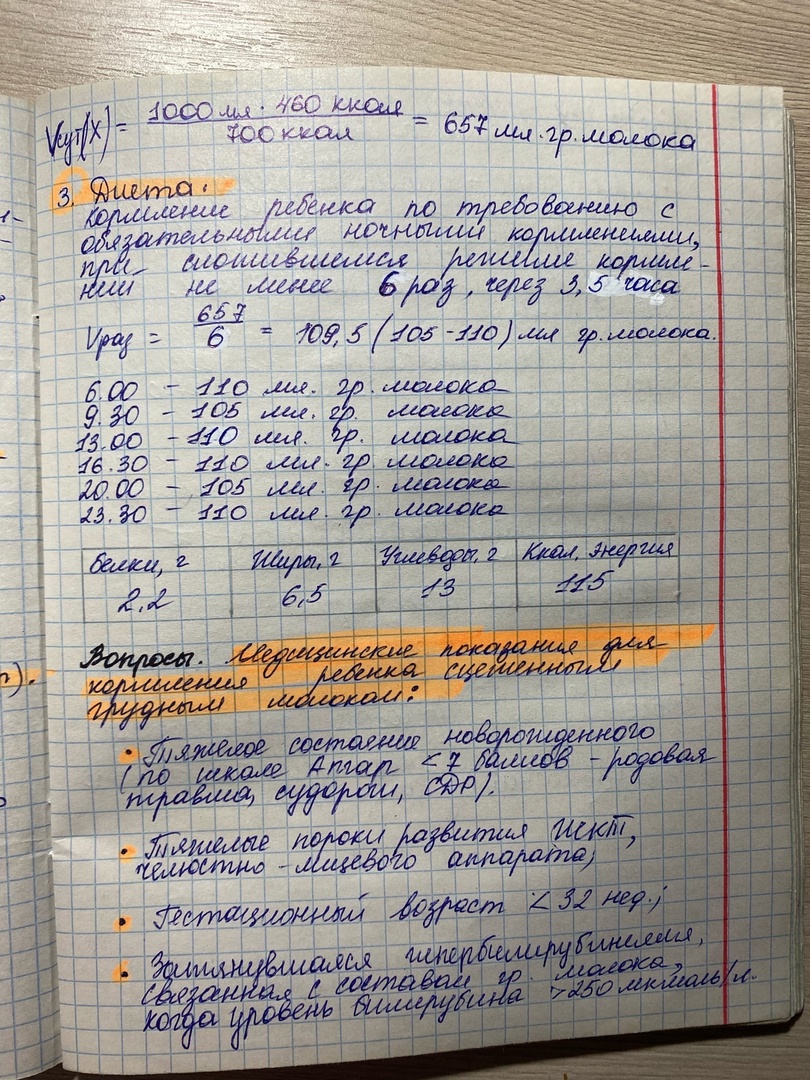 Vсут(X) = 1000 мл · 460 ккал / 700 ккал = 657 мл. гр. молока
3. Диета:
кормление ребенка по требованию с
обязательными ночными кормлениями,
при сложившемся режиме кормле-
ний не менее 6 раз, через 3,5 часа
Vраз = 657 / 6 = 109,5 (105-110) мл гр. молока.
6.00 - 110 мл. гр. молока
9.30 - 105 мл. гр. молока
13.00 - 110 мл. гр. молока
16.30 - 110 мл. гр молока
20.00 - 105 мл. гр. молока
23.30 - 110 мл. гр. молока
Белки, г Жиры, г Углеводы, г Ккал. энергия
2,2 6,5 13 115
Вопросы. Медицинские показания для
кормления ребенка сцеженным
грудным молоком:
• Тяжелое состояние новорожденного
(по шкале Апгар < 7 баллов - родовая
травма, судороги, СДР).
• Тяжелые пороки развития ЖКТ,
челюстно-лицевого аппарата;
• Гестационный возраст < 32 нед.;
• Затянувшаяся гипербилирубинемия,
связанная с составом гр. молока,
когда уровень билирубина >250 мкмоль/л.